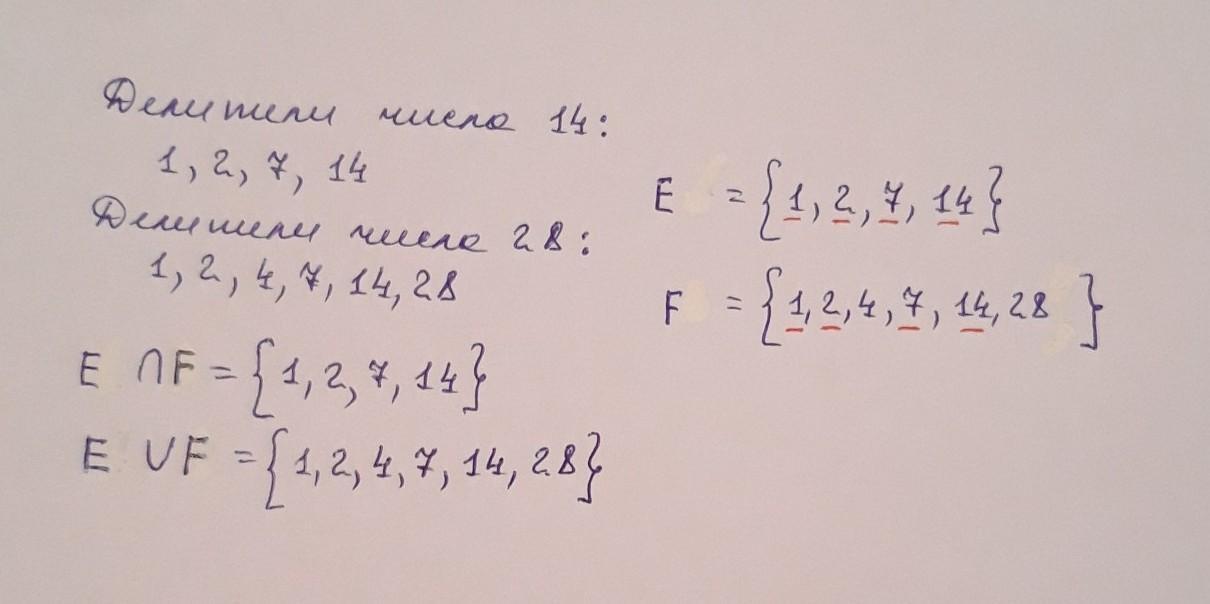 Делители числа 14:
1, 2, 7, 14
Делители числа 28:
1, 2, 4, 7, 14, 28
E = {1, 2, 7, 14}
F = {1, 2, 4, 7, 14, 28}
E ∩ F = {1, 2, 7, 14}
E ∪ F = {1, 2, 4, 7, 14, 28}